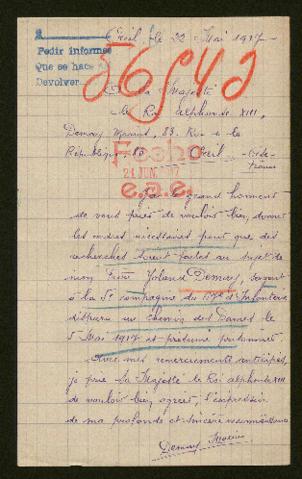 Creil, le 22 Mai 1917
Pedir informes
Que se hace
Devolver
56542
A sa Majesté
le Roi Alphonse XIII,
83, Rue de la
République, Creil - Oise
France
Fecho
21 JUN. 1917
e.a.e.
J'ai le grand honneur
de vous prier de vouloir bien donner
les ordres nécessaires pour que des
recherches soient faites au sujet de
mon frère
à la 5e compagnie du d'Infanterie
disparu au Chemin des Dames le
5 Mai 1917 et présumé prisonnier.
Avec mes remerciements anticipés,
je prie Sa Majesté le Roi Alphonse XIII
de vouloir bien agréer, l'expression
de ma profonde et sincère reconnaissance